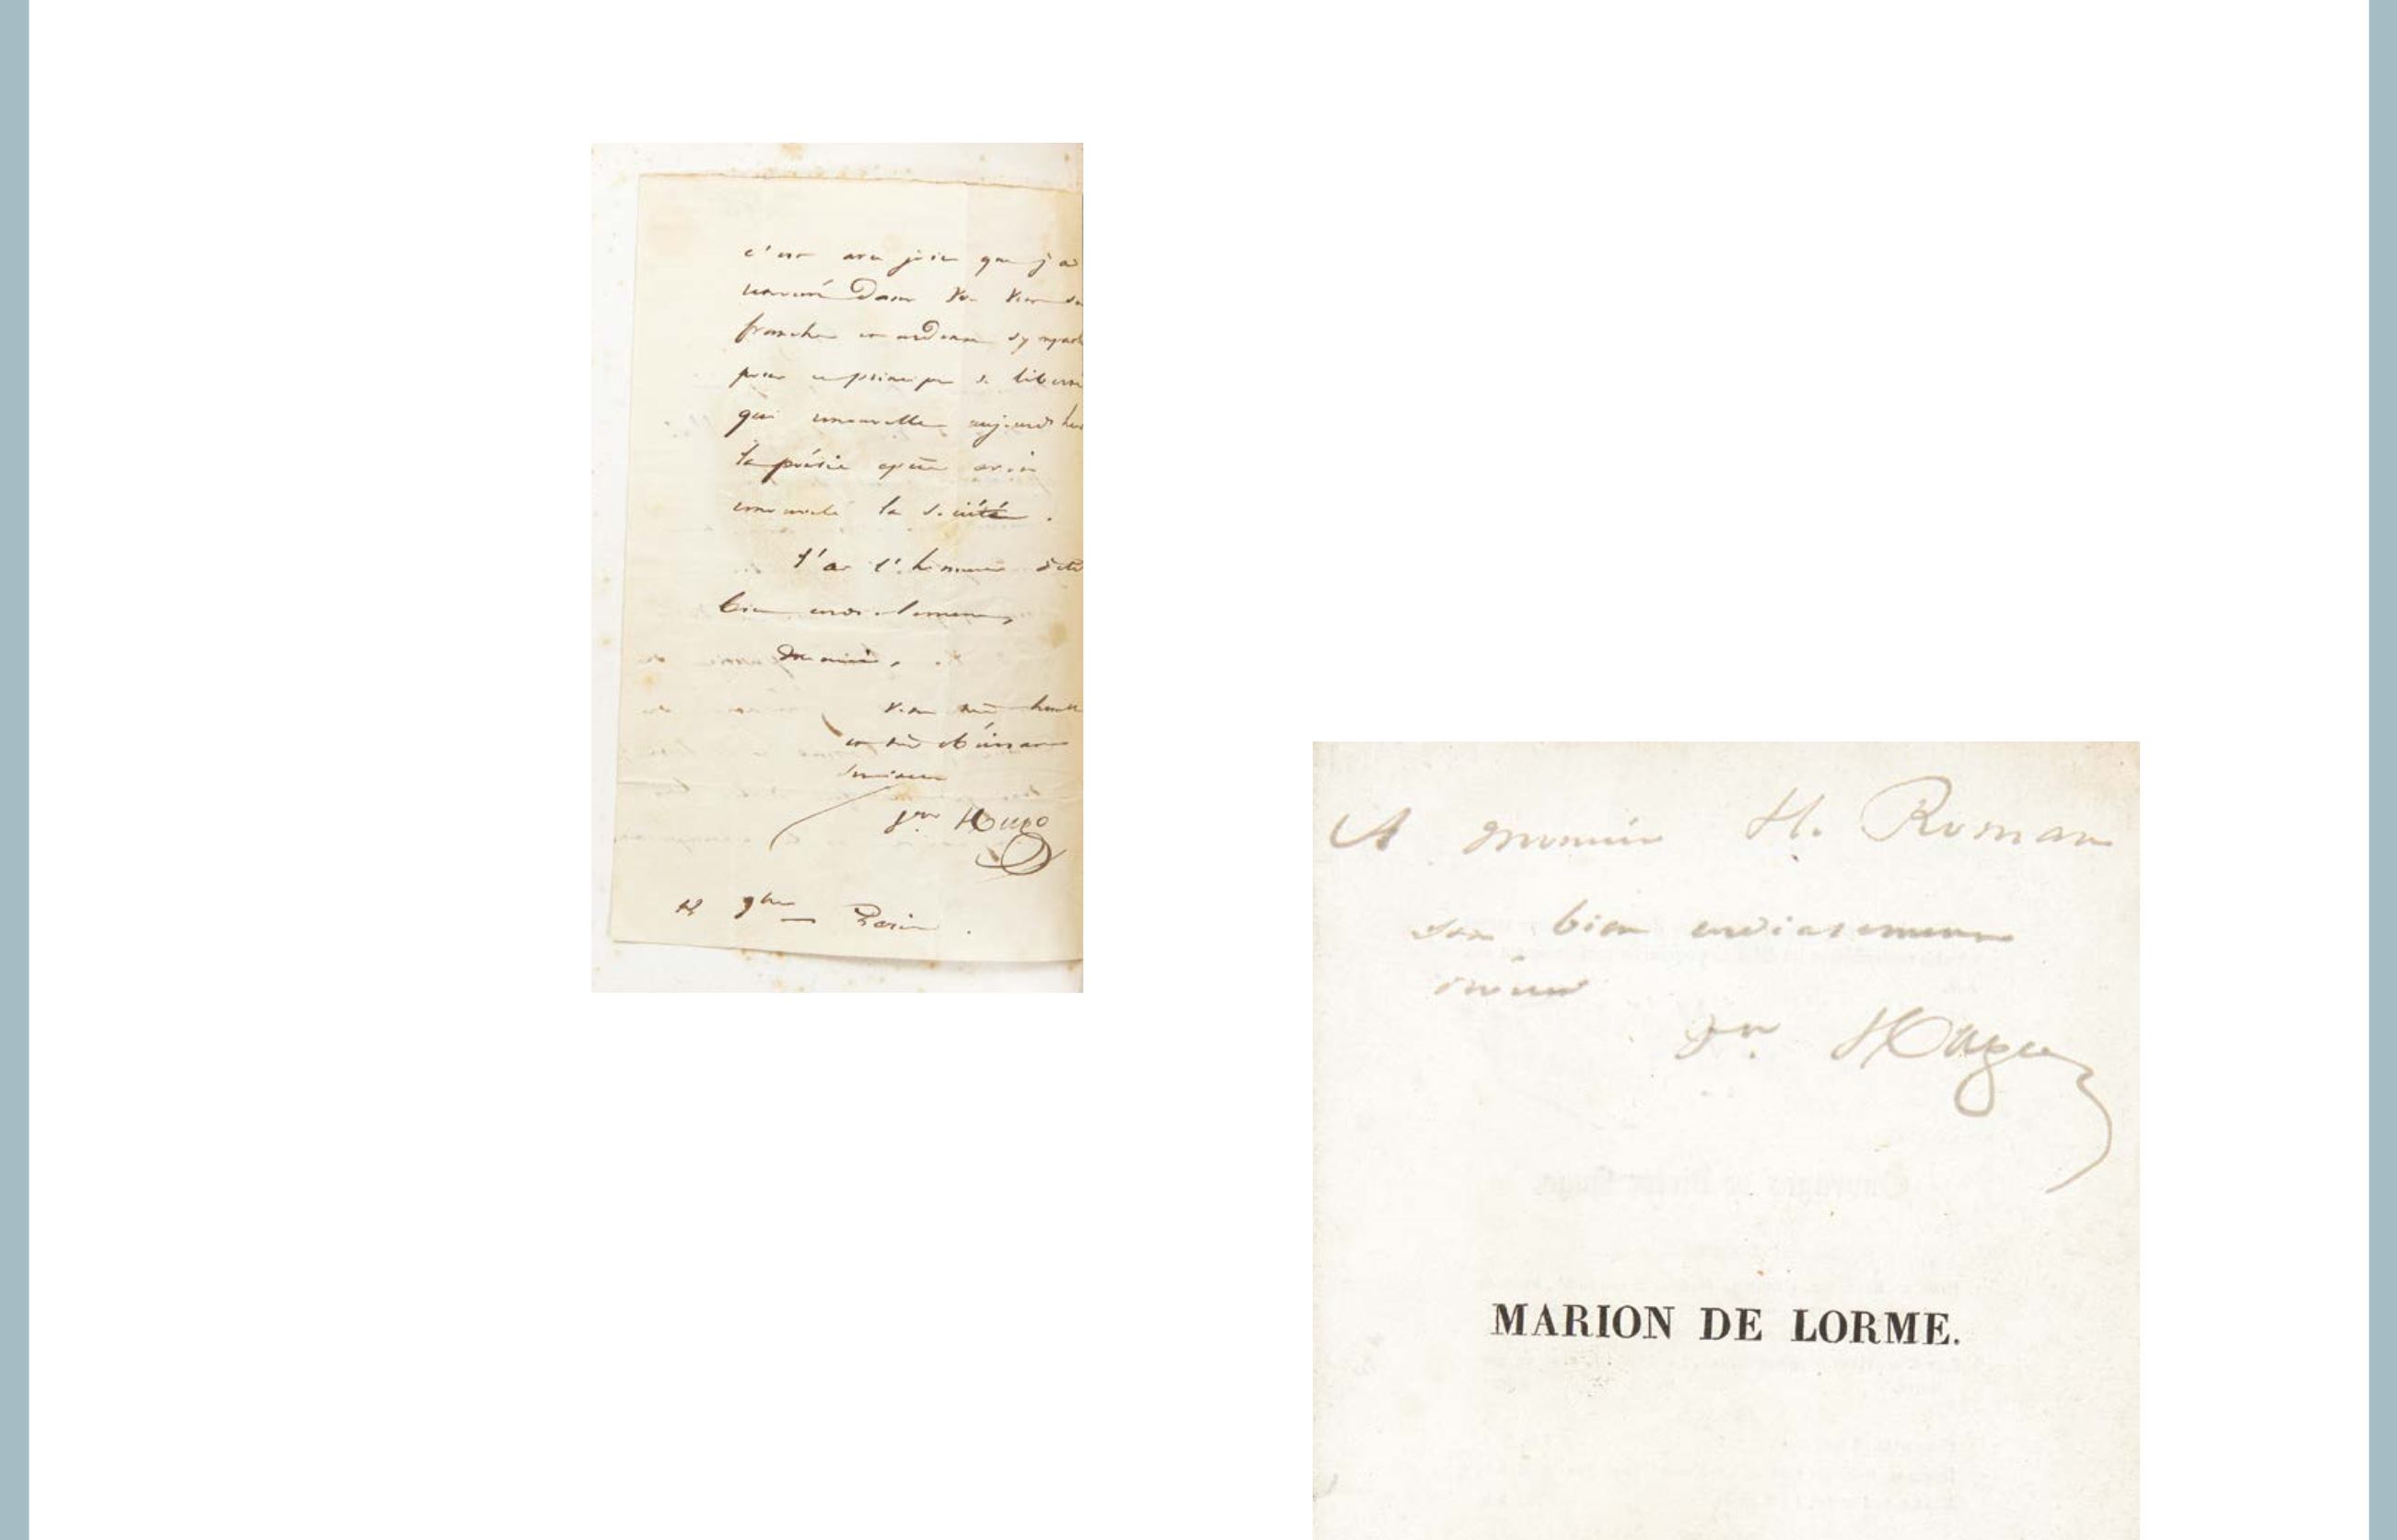 c'est avec joie que j'a
trouvé dans vos vers
franche et ardente sympath
pour ce principe de liberté
qui renouvelle aujourd'hui
la poésie après avoir
renouvelé la société.
J'ai l'honneur d'être
bien cordialement,
Monsieur,
votre très humb
et très obéissant
serviteur
Vor Hugo
18 9bre Paris.
A monsieur H. Roman
son bien cordialement
dévoué
Vor Hugo
MARION DE LORME.